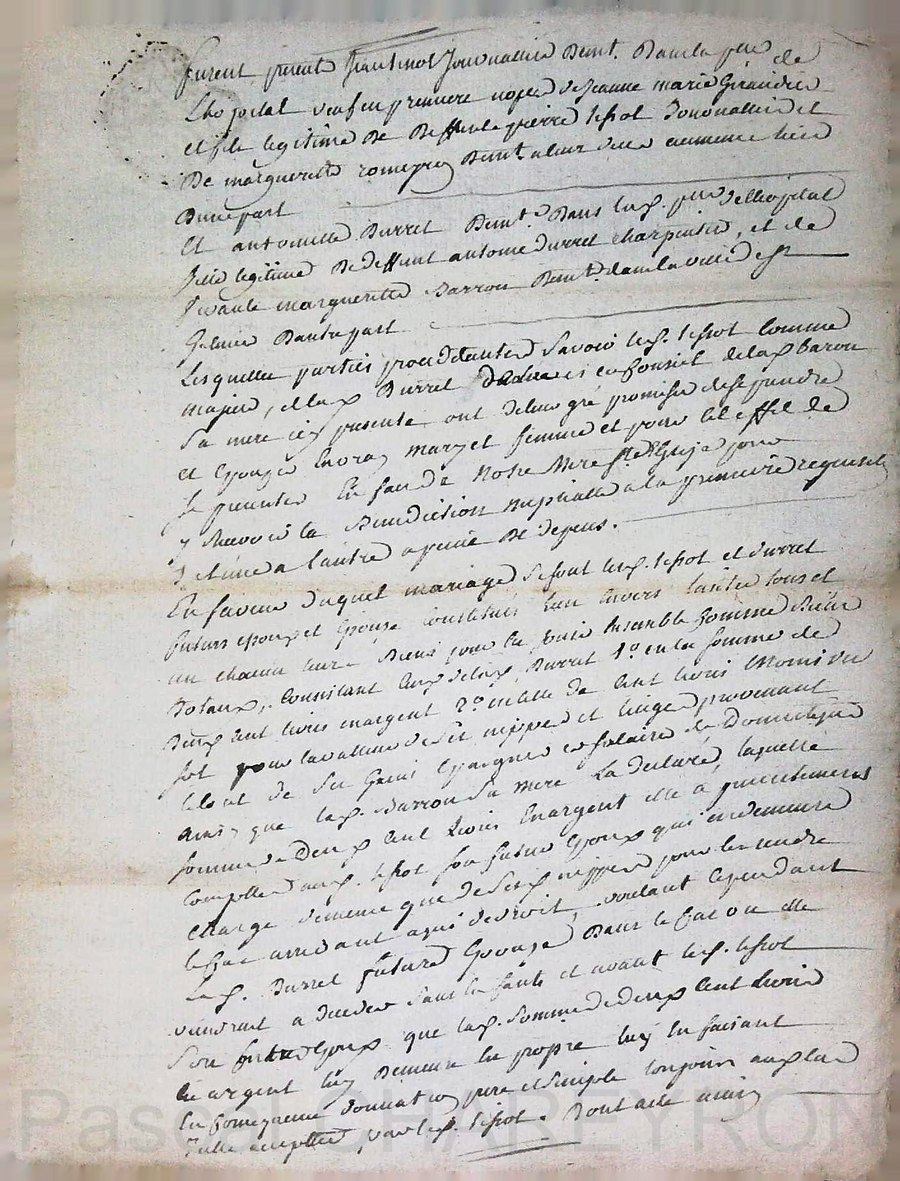 furent présents Jean tissot Journallier demt. dans la pse de
Lhopital veuf en premiere nopces de Jeanne marie Giraudier
et fils legitime de deffunt pierre tissot Journallier et
de margueritte romeyer demt a
d'une part
Et antoinette Durret demte. dans lad. pse de lhopital
fille legitime de deffunt antoine durret charpentier, et de
vivante margueritte Barrou demte dans la ville de st
Galmier d'autre part
Lesquelles parties procedantes savoir led. tissot comme
majeur, et lad Durret de et conseil de lad baron
Sa mere icy presente ont de leur gré promis de se prendre
et Epouser En vray mary et femme et pour cet effet de
se presenter En face de Notre Mere ste Eglise pour
y recevoir la Benediction nuptialle a la premiere requisition
de l'une a l'autre a peine de depens.
En faveur duquel mariage se sont led. tissot et durret
futurs epoux et Epouse constitués l'un envers l'autre tous et
un chacun leurs Biens pour la Somme
Dotaux, consistant ceux de lad. Durret 1o. en la somme de
Deux cent livres en argent 2o. en celle de cent livres
pour la valleur de ses nippes et linges provenant
le tout de ses Gains Epargnes et salaires de Domestique
ainsy que lad. Barrou Sa mere La declaré, laquelle
somme de Deux cent livres En argent elle a presentement
comptée aud. tissot son futur Epoux qui en demeure
chargé de meme que desd. nippes pour les rendre
le cas arrivant a qui de droit, voulant cependant
Lad. Durret future Epouse, Dans le Cas ou elle
viendroit a deceder sans enfants et avant led. tissot
son futur Epoux que lad. Somme de deux cent livres
en argent luy demeure en propre luy en faisant
En consequence donnation pure et simple toujours
acceptée par led. tissot. Dont acte ainsy
Pascal CHAREYRON